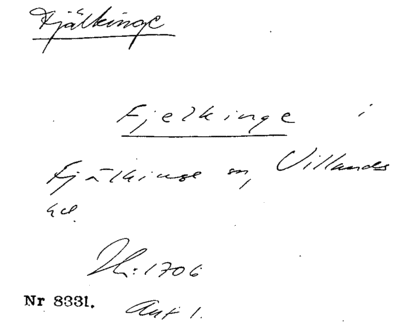 Fjälkinge
Fjelkinge i
Fjälkinge sn, Villands
hd.
Jb: 1706
Nr 8331. Ant 1.